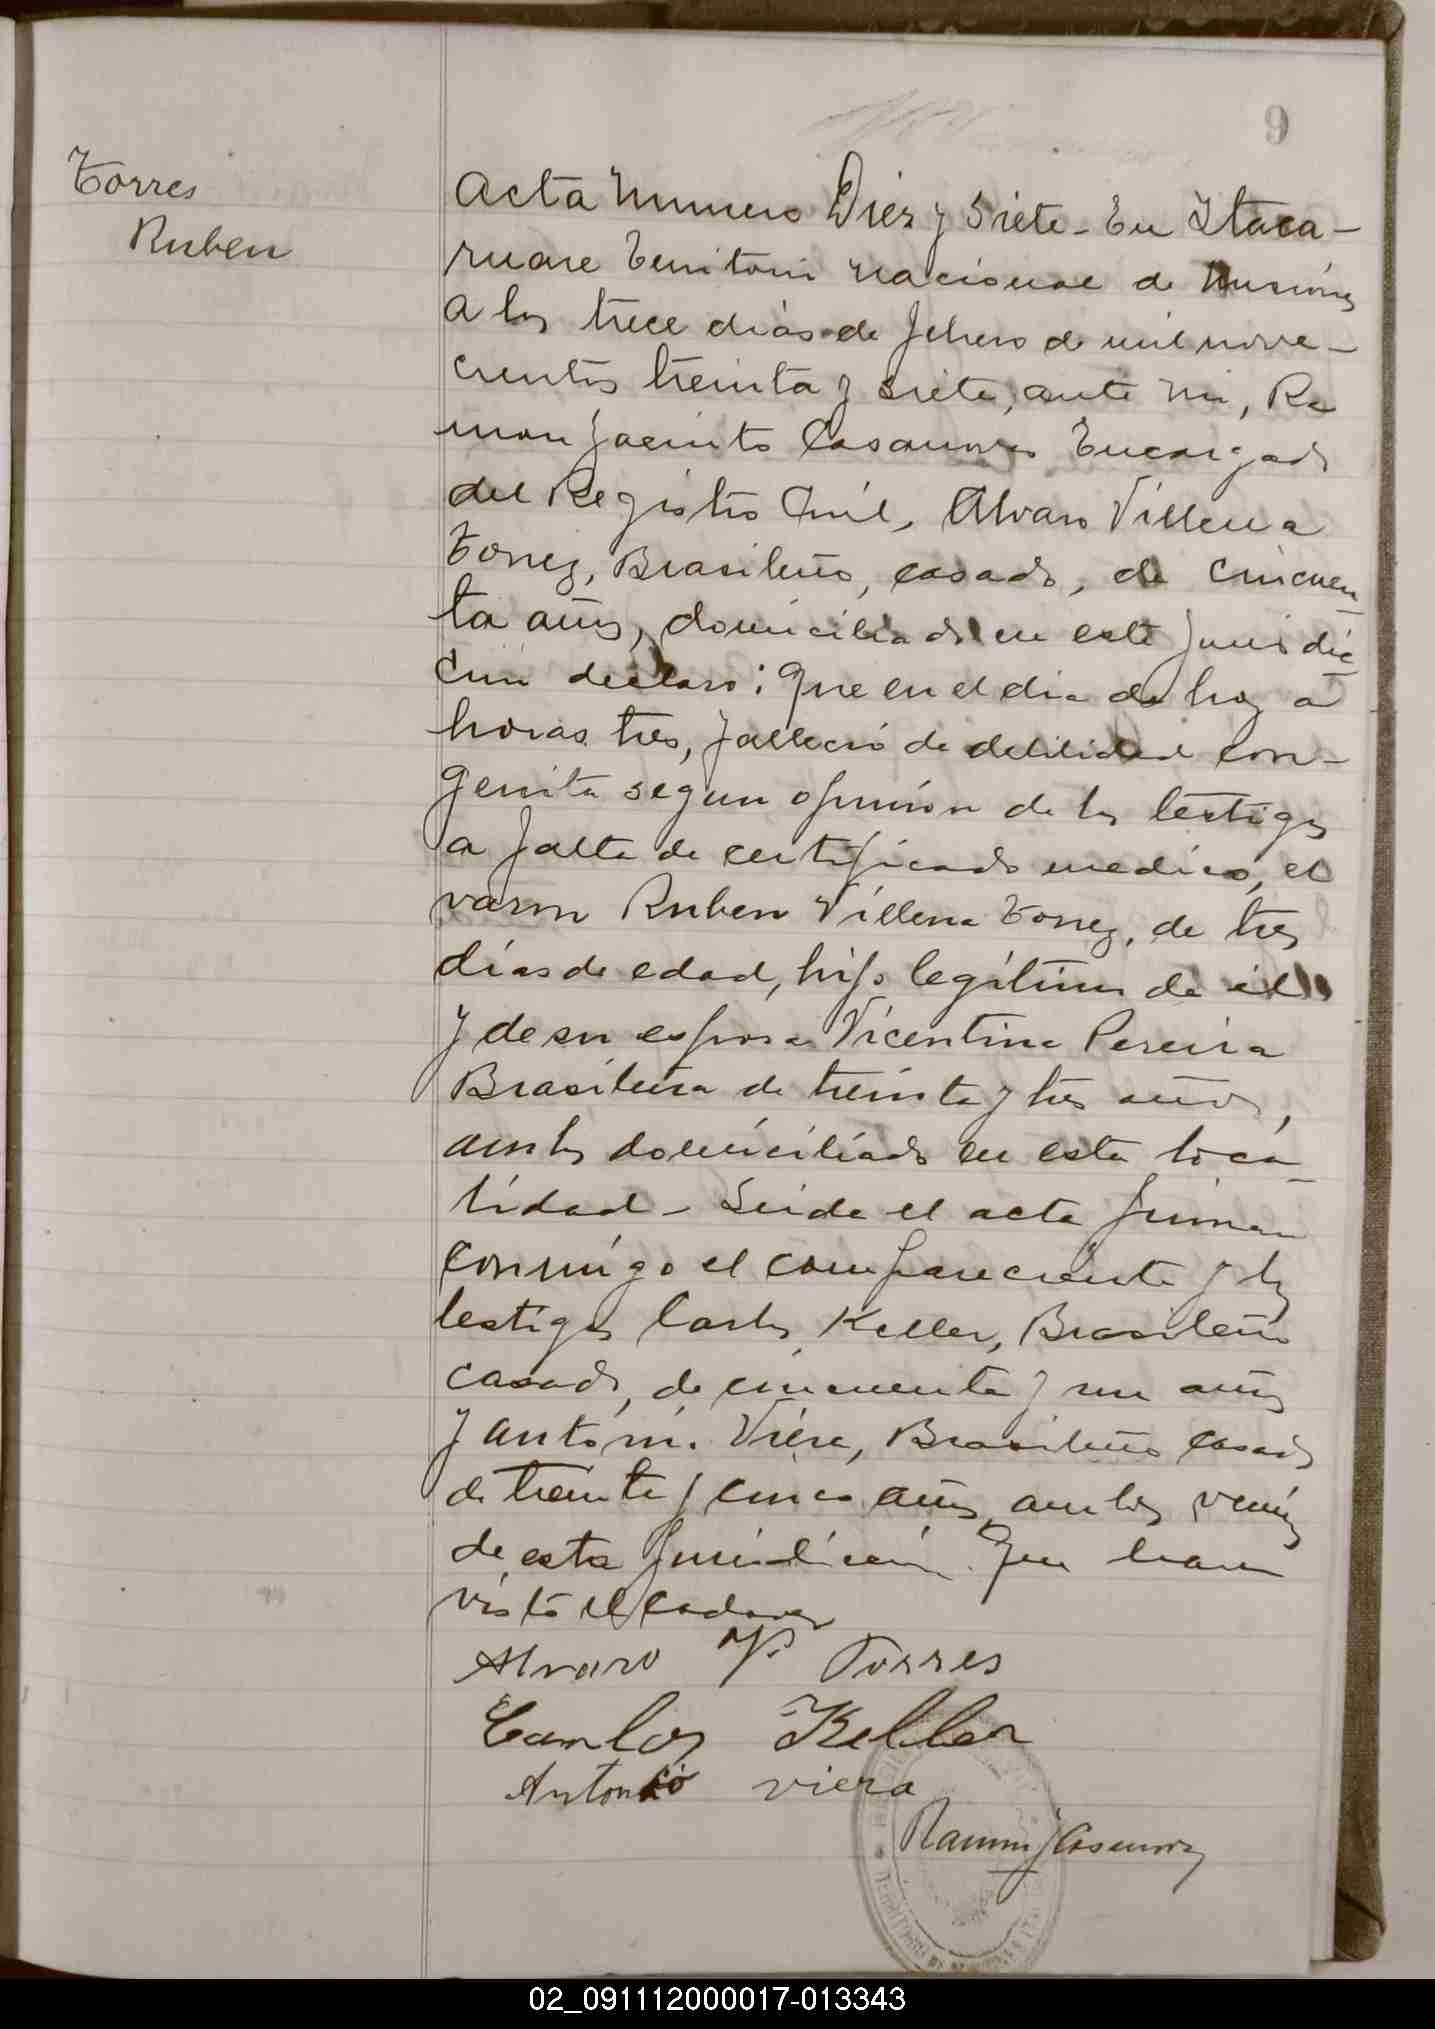 9
Torres
Ruben
Acta Numero Diez y Siete - En Itaca-
ruare Territorio Nacional de Misiones
a los trece días de febrero de mil nove-
cientos treinta y siete, ante mi, Ra
mon Jacinto Casanova Encargado
del Registro Civil, Alvaro Villena
Torrez, Brasileño, casado, de cincuen-
ta años, domiciliado en este Jurisdic-
ción declaro: Que en el dia de hoy a
horas tres, falleció de debilidad con-
genita segun opinión de los testigos
a falta de certificado medico, el
varon Ruben Villena Torrez, de tres
días de edad, hijo legítimo de él
y de su esposa Vicentina Pereira
Brasileña de treinta y tres años,
ambos domiciliado en esta loca-
lidad - Leida el acta firman
conmigo el compareciente y los
testigos Carlos Keller, Brasileño
casado, de cincuenta y un años
y Antonio Viera, Brasileño casado
de treinta y cinco años, ambos vecinos
de esta Jurisdicción. Que han
visto el cadaver
Alvaro V. Torres
Carlos Keller
Antonio viera
Ramon J Casanova
02_091112000017-013343